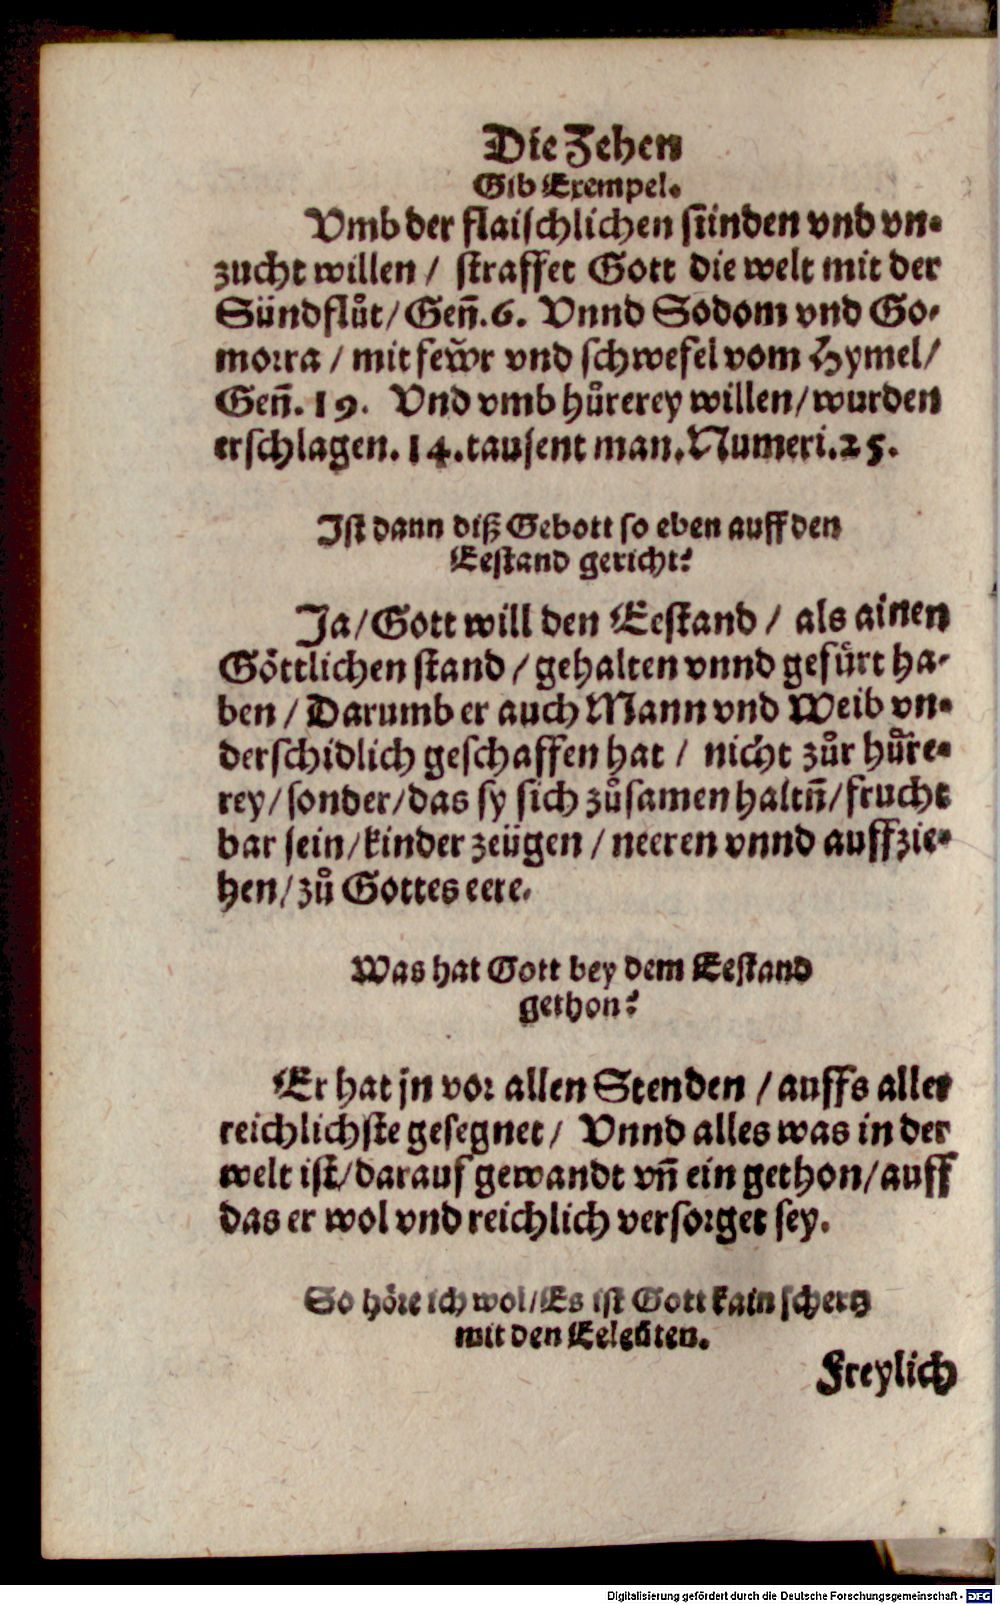 Die Zehen
Gib Exempel.
Vmb der flaischlichen sünden vnd vn-
zucht willen / straffet Gott die welt mit der
Sündflůt / Geñ.6. Vnnd Sodom vnd Go-
morra / mit fewr vnd schwefel vom Hymel /
Geñ. 19. Vnd vmb hůrerey willen / wurden
erschlagen. 14. tausent man. Numeri. 25.
Ist dann diß Gebott so eben auff den
Eestand gericht?
Ja / Gott will den Eestand / als ainen
Göttlichen stand / gehalten vnnd gefůrt ha-
ben / Darumb er auch Mann vnd Weib vn-
derschidlich geschaffen hat / nicht zůr hůre-
rey / sonder / das sy sich zůsamen haltñ / frucht
bar sein / kinder zeügen / neeren vnnd auffzie-
hen / zů Gottes eere.
Was hat Gott bey dem Eestand
gethon?
Er hat jn vor allen Stenden / auffs aller
reichlichste gesegnet / Vnnd alles was in der
welt ist / darauf gewandt vñ ein gethon / auff
das er wol vnd reichlich versorget sey.
So höre ich wol / Es ist Gott kain schertz
mit den Eeleüten.
Freylich
Digitalisierung gefördert durch die Deutsche Forschungsgemeinschaft - DFG